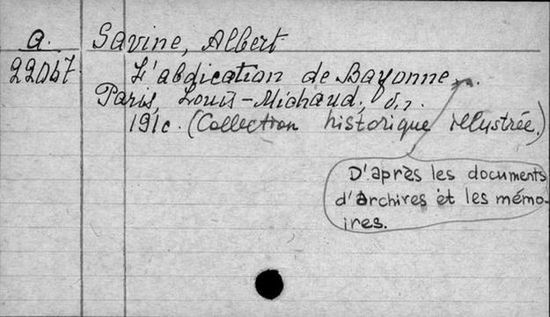 a. Savine, Albert
22047 L'abdication de Bayonne.
Paris, Louis-Michaud, s.
191c. (Collection historique illustrée.)
D'après les documents
d'archives et les mémo-
ires.